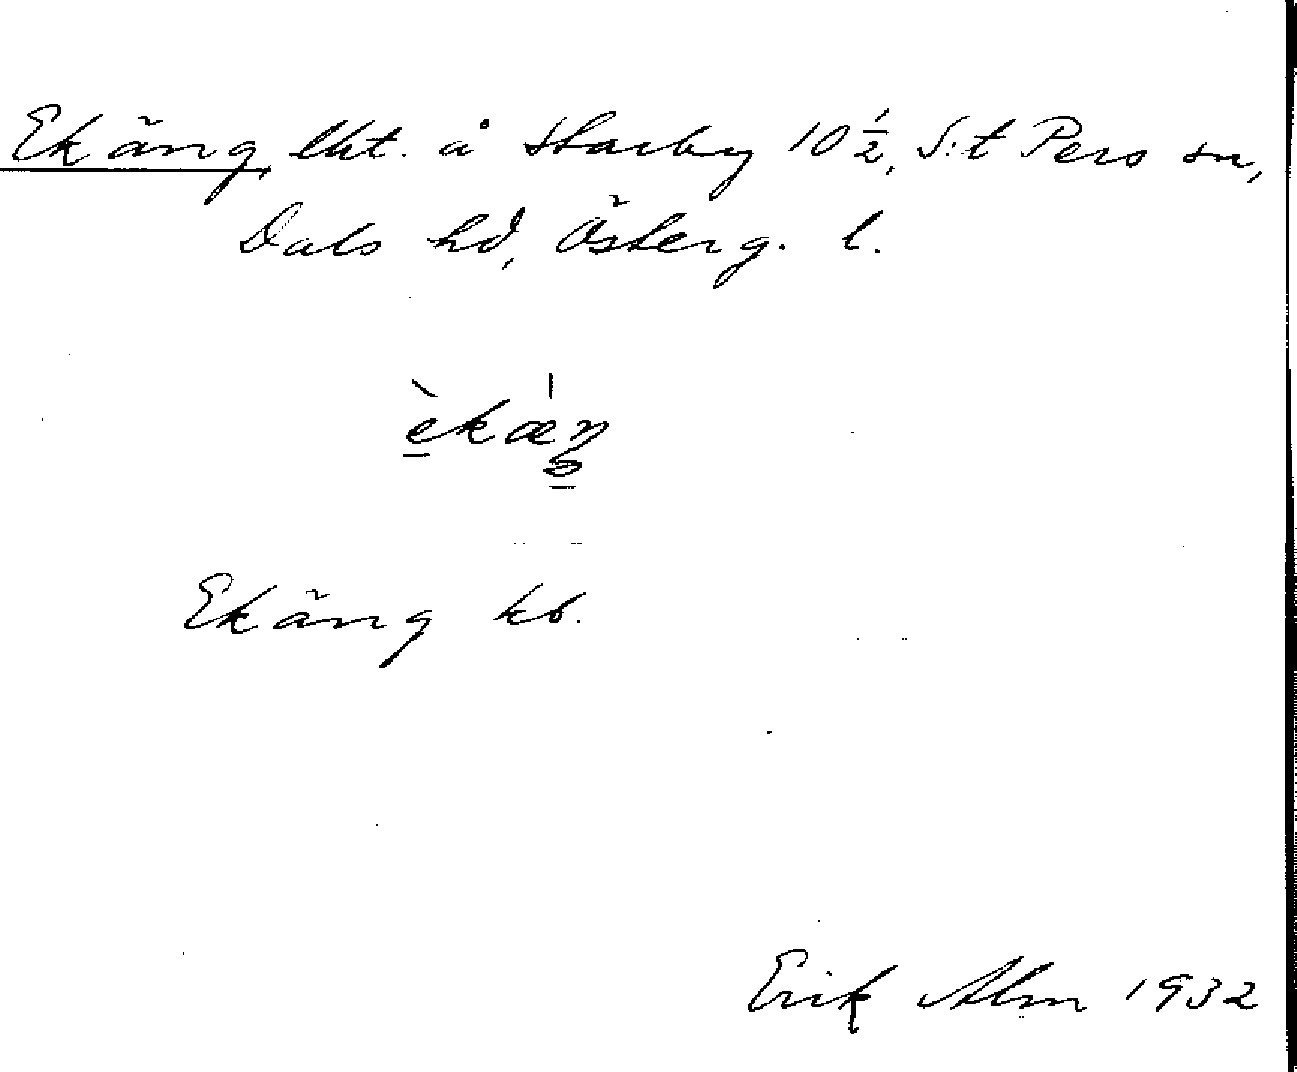 Ekäng, lht. å Starby 10½, S:t Pers sn,
Dals hd, Österg. l.
èkæŋ
Ekäng kb.
Erik Alm 1932